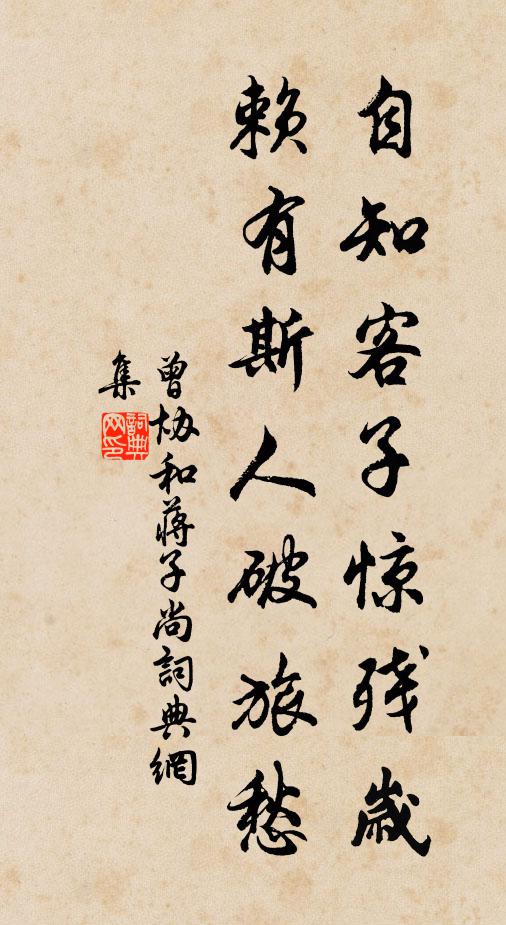 自知客子惊残歳
赖有斯人破旅愁
曾协和蒋子尚詞典網
集
詞典
网印